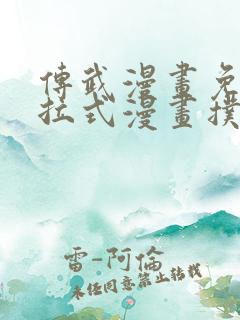 傳武漫畫免
拉式漫畫撲
雷-阿倫
未經同意禁止轉載